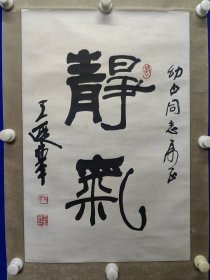 幼白同志属正
靜氣
王遐舉